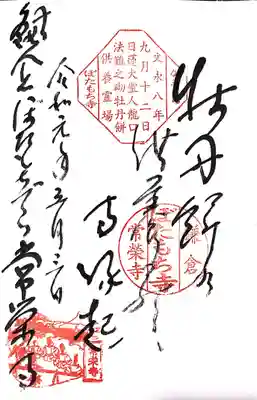 文永八年
九月十二日
日蓮大聖人龍口
法難之砌牡丹餅
供養霊場
ぼたもち寺
牡丹餅
供養
寺縁起
鎌倉
ぼたもち寺
常榮寺
令和元年五月三一日
鎌倉ぼたもち寺常栄寺
常榮寺